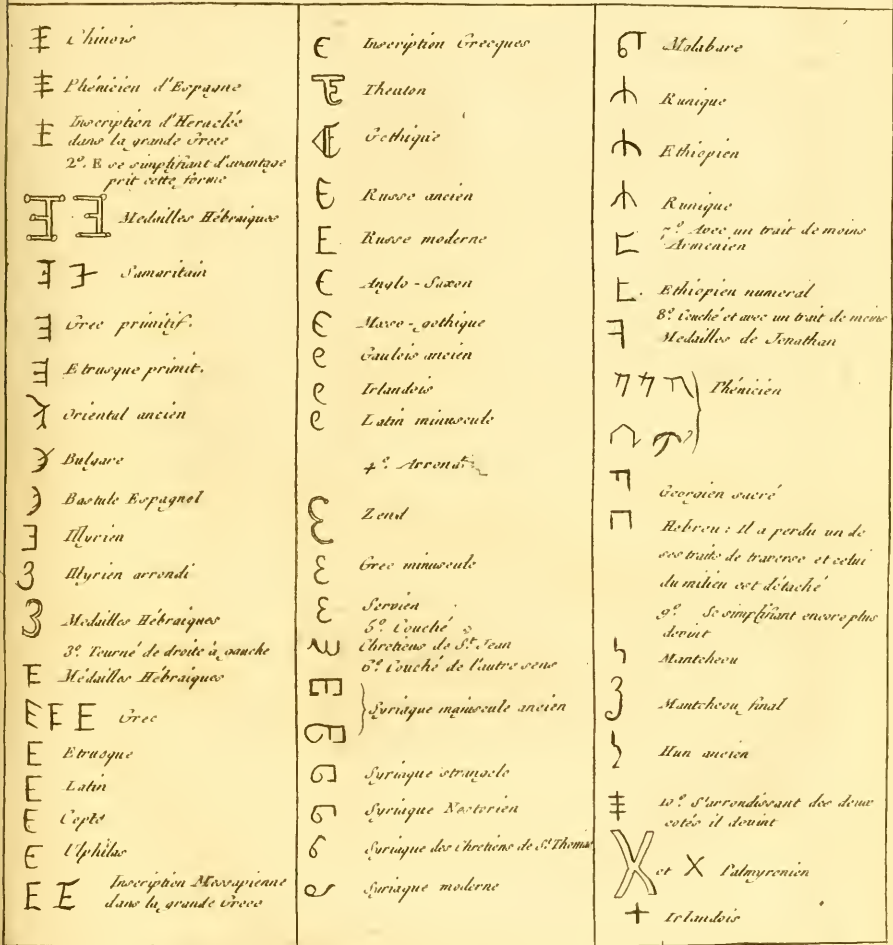 Chinois
Phénicien d'Espagne
Inscription d'Heraclée
dans la grande Grece
2º. E se simplifiant d'avantage
prit cette forme
Medailles Hébraiques
Samaritain
Grec primitif.
Etrusque primit.
Oriental ancien
Bulgare
Bastule Espagnol
Illyrien
Illyrien arrondi
Medailles Hébraiques
3º. Tourné de droite à gauche
Médailles Hébraiques
Grec
Etrusque
Latin
Copte
Ulphilas
Inscription Messapienne
dans la grande Grece
Inscription Grecques
Theuton
Gothique
Russe ancien
Russe moderne
Anglo-Saxon
Mœso-gothique
Gaulois ancien
Irlandois
Latin minuscule
4º. Arrondi
Zend
Grec minuscule
Servien
5º. Couché
Chretiens de St. Jean
6º. Couché de l'autre sens
Syriaque majuscule ancien
Syriaque strangele
Syriaque Nestorien
Syriaque des Chretiens de St. Thomas
Syriaque moderne
Malabare
Runique
Ethiopien
Runique
7º. Avec un trait de moins
Armenien
Ethiopien numeral
8º. Couché et avec un trait de moins
Medailles de Jonathan
Phénicien
Georgien sacré
Hebreu : Il a perdu un de
ses traits de traverse et celui
du milieu est détaché
9º. Se simplifiant encore plus
devint
Mantcheou
Mantcheou final
Hun ancien
10º. S'arrondissant des deux
cotés il devint
et X Palmyrenien
Irlandois